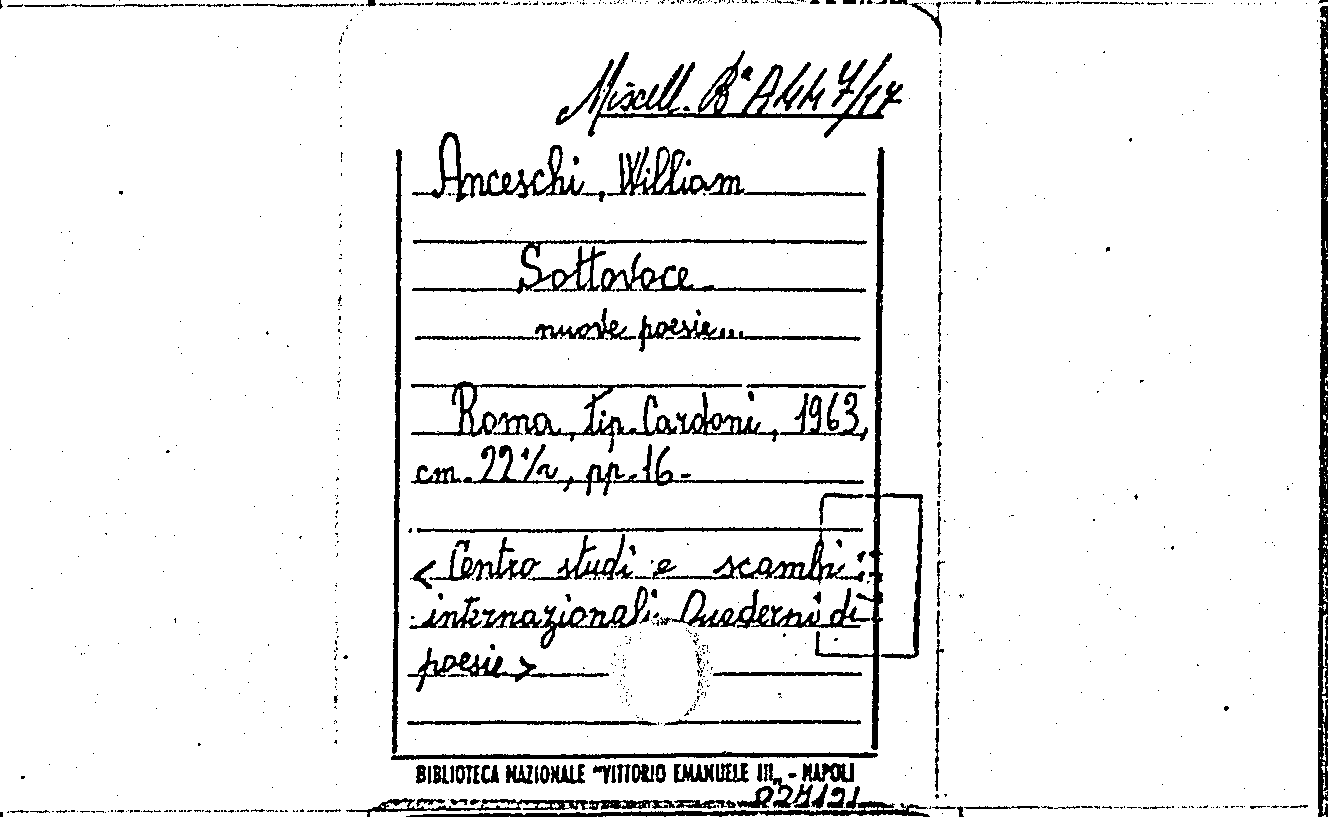 Miscell. Bª A447/17
Anceschi, William
Sottovoce.
nuove poesie...
Roma, tip. Cardoni, 1963,
cm. 22½, pp. 16-
< Centro studi e scambi
internazionali. Quaderni di
poesie >
BIBLIOTECA NAZIONALE "VITTORIO EMANUELE III„ - NAPOLI